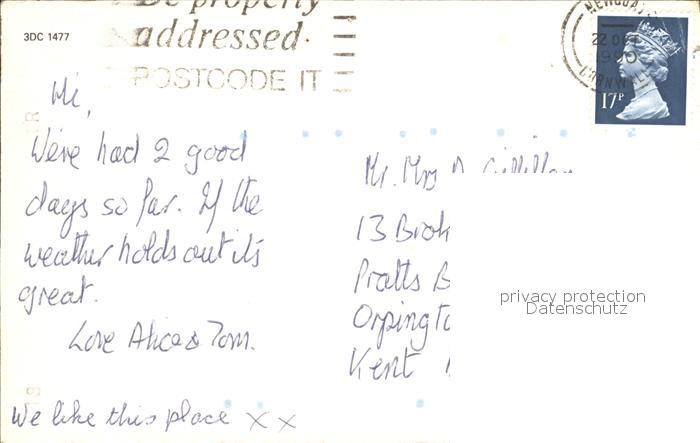 Be properly
addressed.
POSTCODE IT
3DC 1477
NEWQUAY
22 OC
CORNWALL
17P
Hi,
We've had 2 good
days so far. If the
weather holds out it's
great.
Love Alice & Tom.
We like this place X X
Mr. Mrs
13 Brok
Pratts B
Orpingto
Kent
privacy protection
Datenschutz